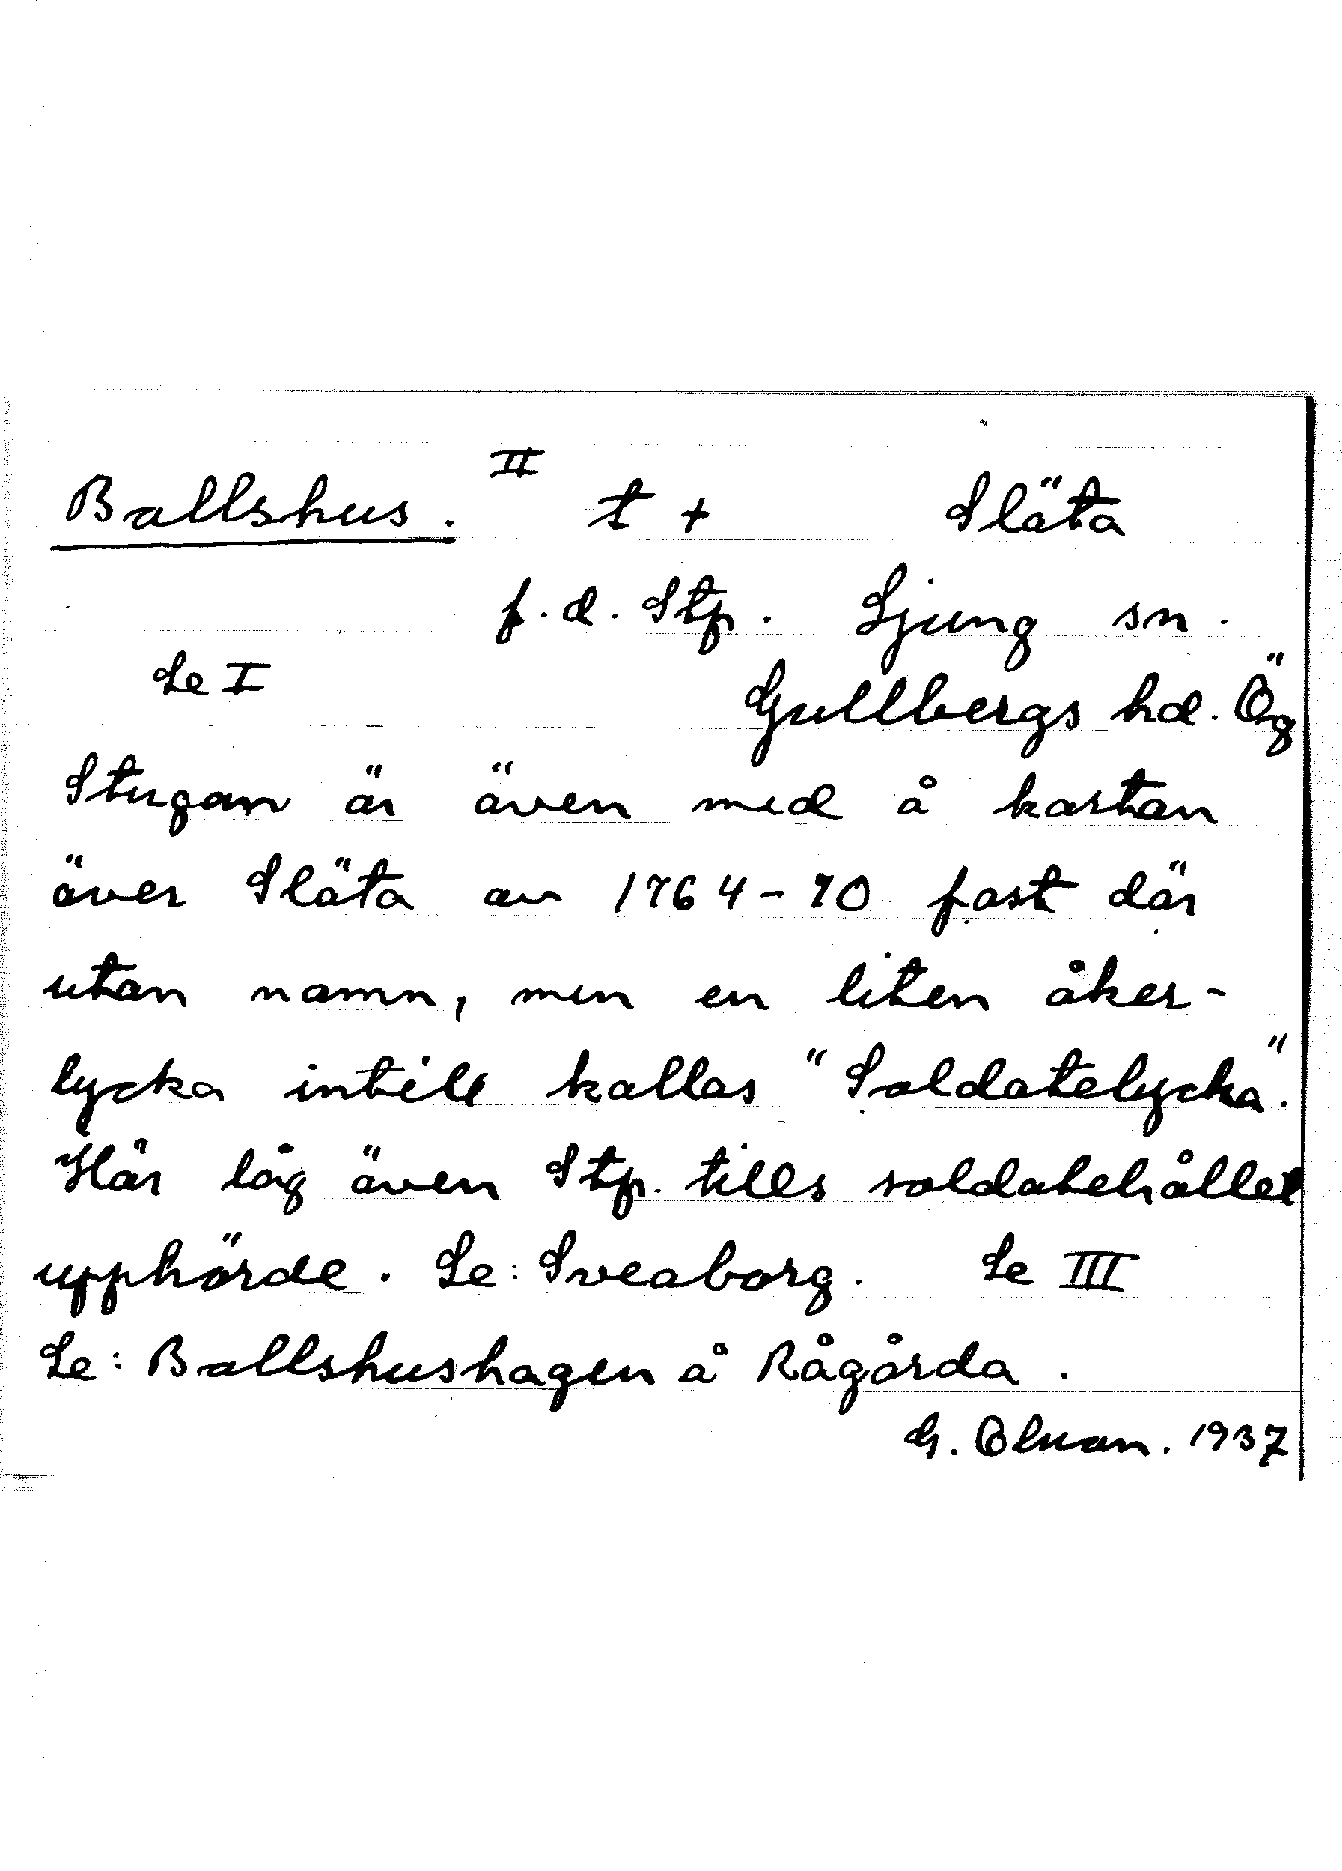 Ballshus. II t + Släta
f.d. Stp. Ljung sn.
Se I
Gullbergs hd. Ög
Stugan är även med å kartan
över Släta av 1764-70 fast där
utan namn, men en liten åker-
lycka intill kallas "Soldatelycka".
Här låg även Stp. tills soldatehållet
upphörde. Se: Sveaborg. Se III
Se: Ballshushagen å Rågårda.
G. Olman. 1937